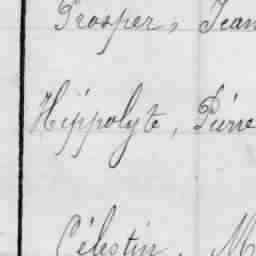 Prosper, Jean
Hippolyte, Pierre
Célestin, M